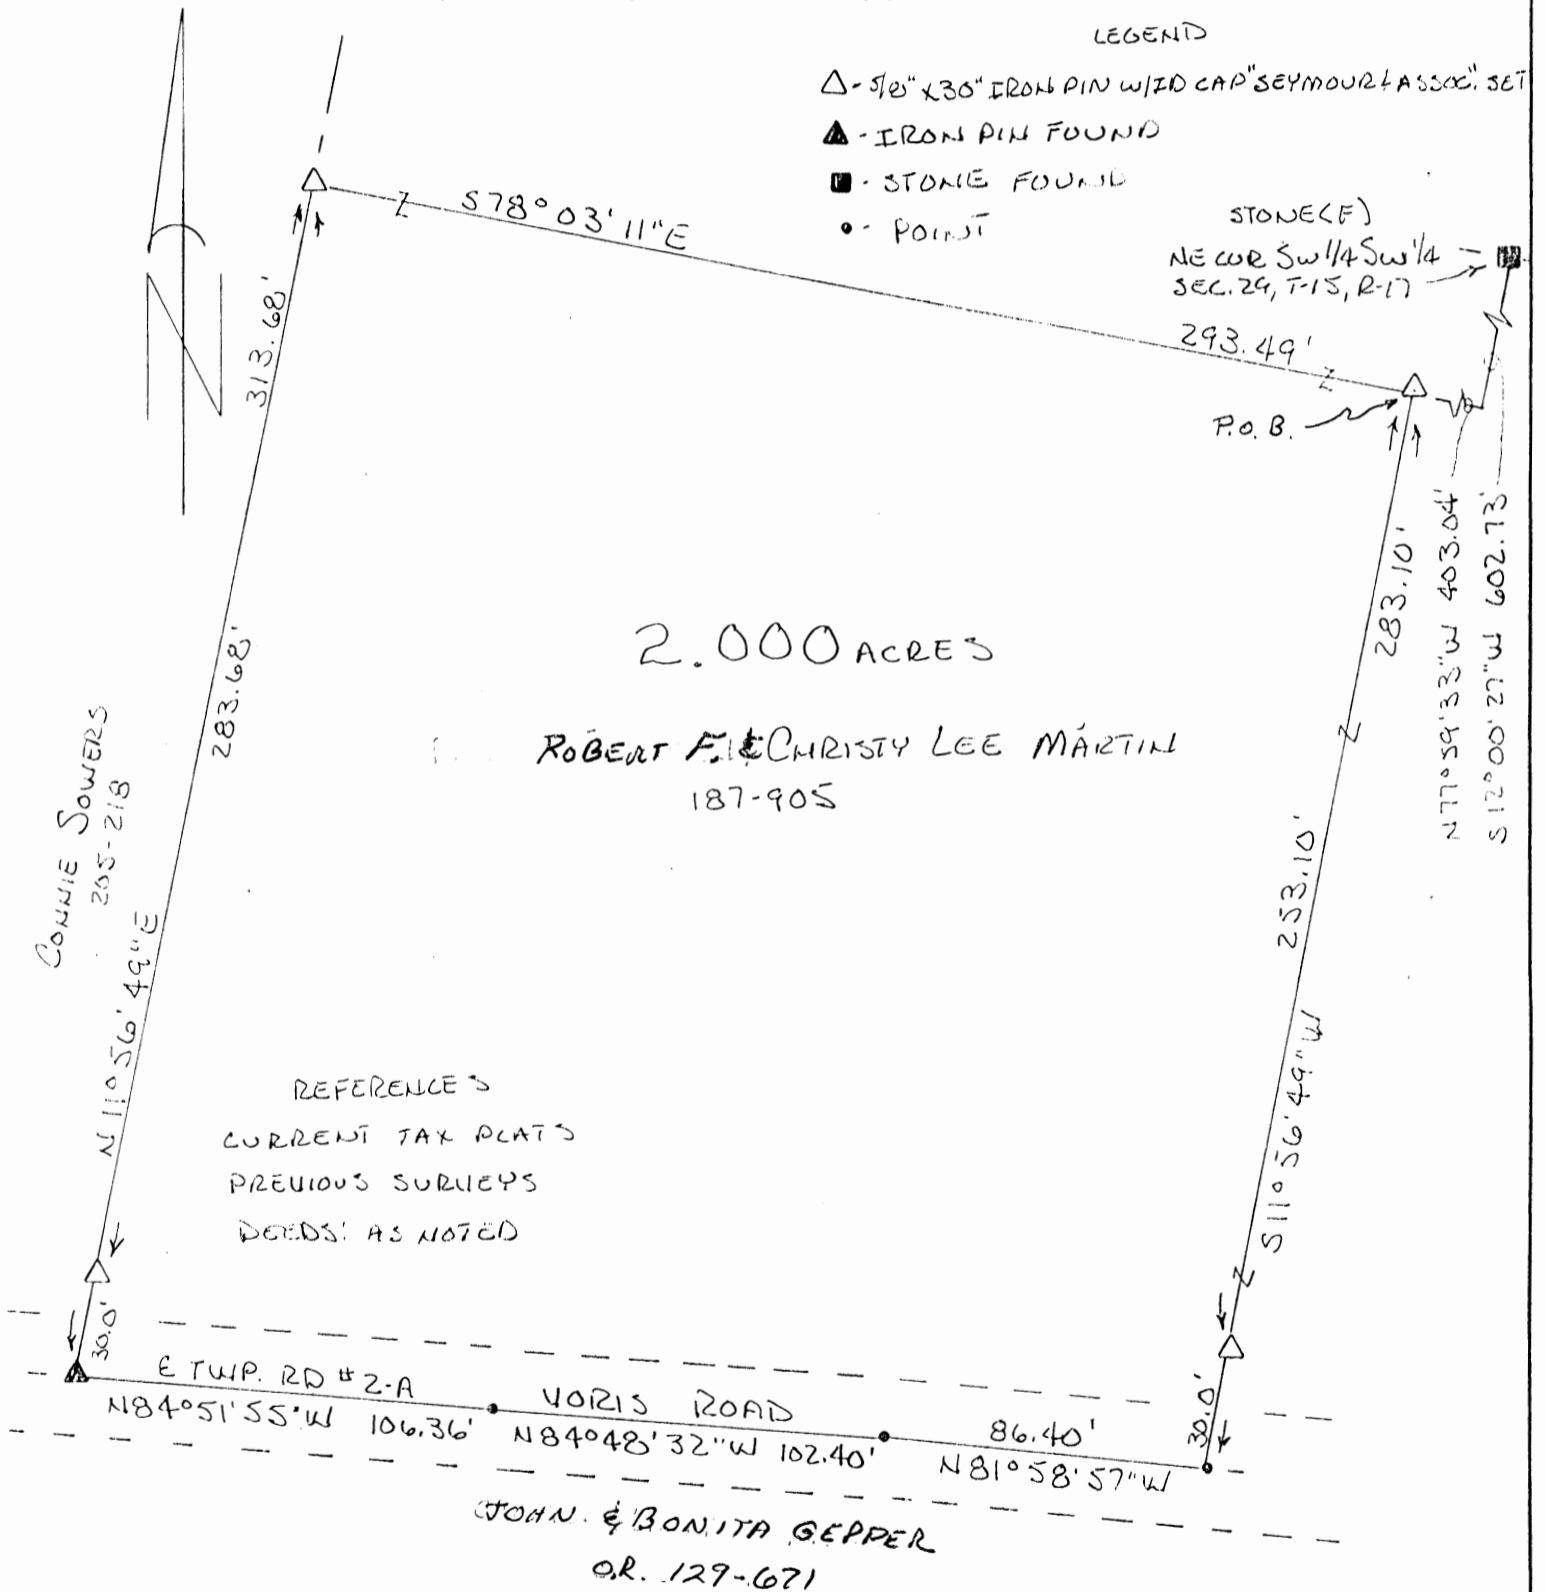 LEGEND
△ - 5/8" X 30" IRON PIN W/ID CAP "SEYMOUR & ASSOC." SET
▲ - IRON PIN FOUND
■ - STONE FOUND
• - POINT
N
S78°03'11"E
293.49'
STONE(F)
NE COR SW 1/4 SW 1/4
SEC. 29, T-15, R-17
P.O.B.
313.68'
283.68'
N 11°56'49"E
CONNIE SOWERS
205-218
283.10'
253.10'
S11°56'49"W
N77°59'33"W 403.04'
S12°00'27"W 602.73'
2.000 ACRES
ROBERT F. & CHRISTY LEE MARTIN
187-905
REFERENCES
CURRENT TAX PLATS
PREVIOUS SURVEYS
DEEDS: AS NOTED
30.0'
30.0'
℄ TWP. RD #2-A
VORIS ROAD
86.40'
N84°51'55"W 106.36'
N84°48'32"W 102.40'
N81°58'57"W
JOHN. & BONITA GEPPER
O.R. 129-671